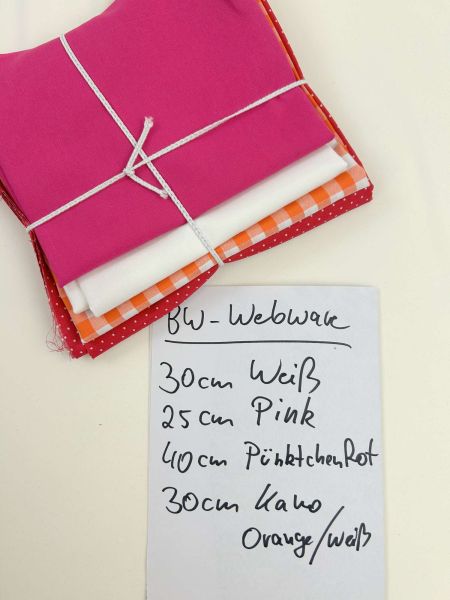 BW-Webware
30cm Weiß
25cm Pink
40cm Pünktchen Rot
30cm Karo
Orange/weiß